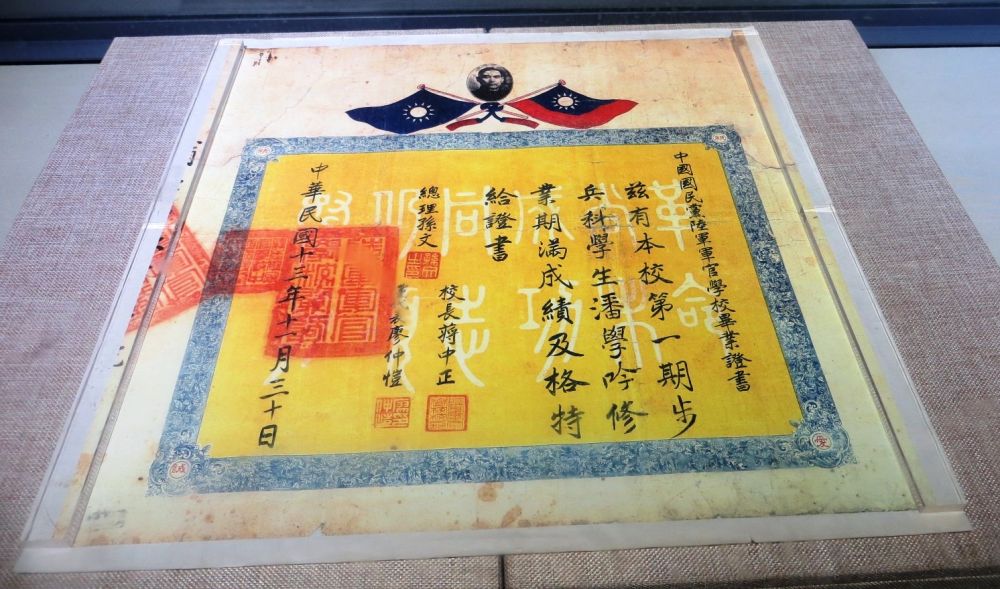 中國國民黨陸軍軍官學校畢業證書
茲有本校第一期步
兵科學生潘學吟修
業期滿成績及格特
給證書
總理孫文
校長蔣中正
廖仲愷
中華民國十三年十一月三十日
革命
尚未
成功
同志
仍須
努力
親
愛
精
誠